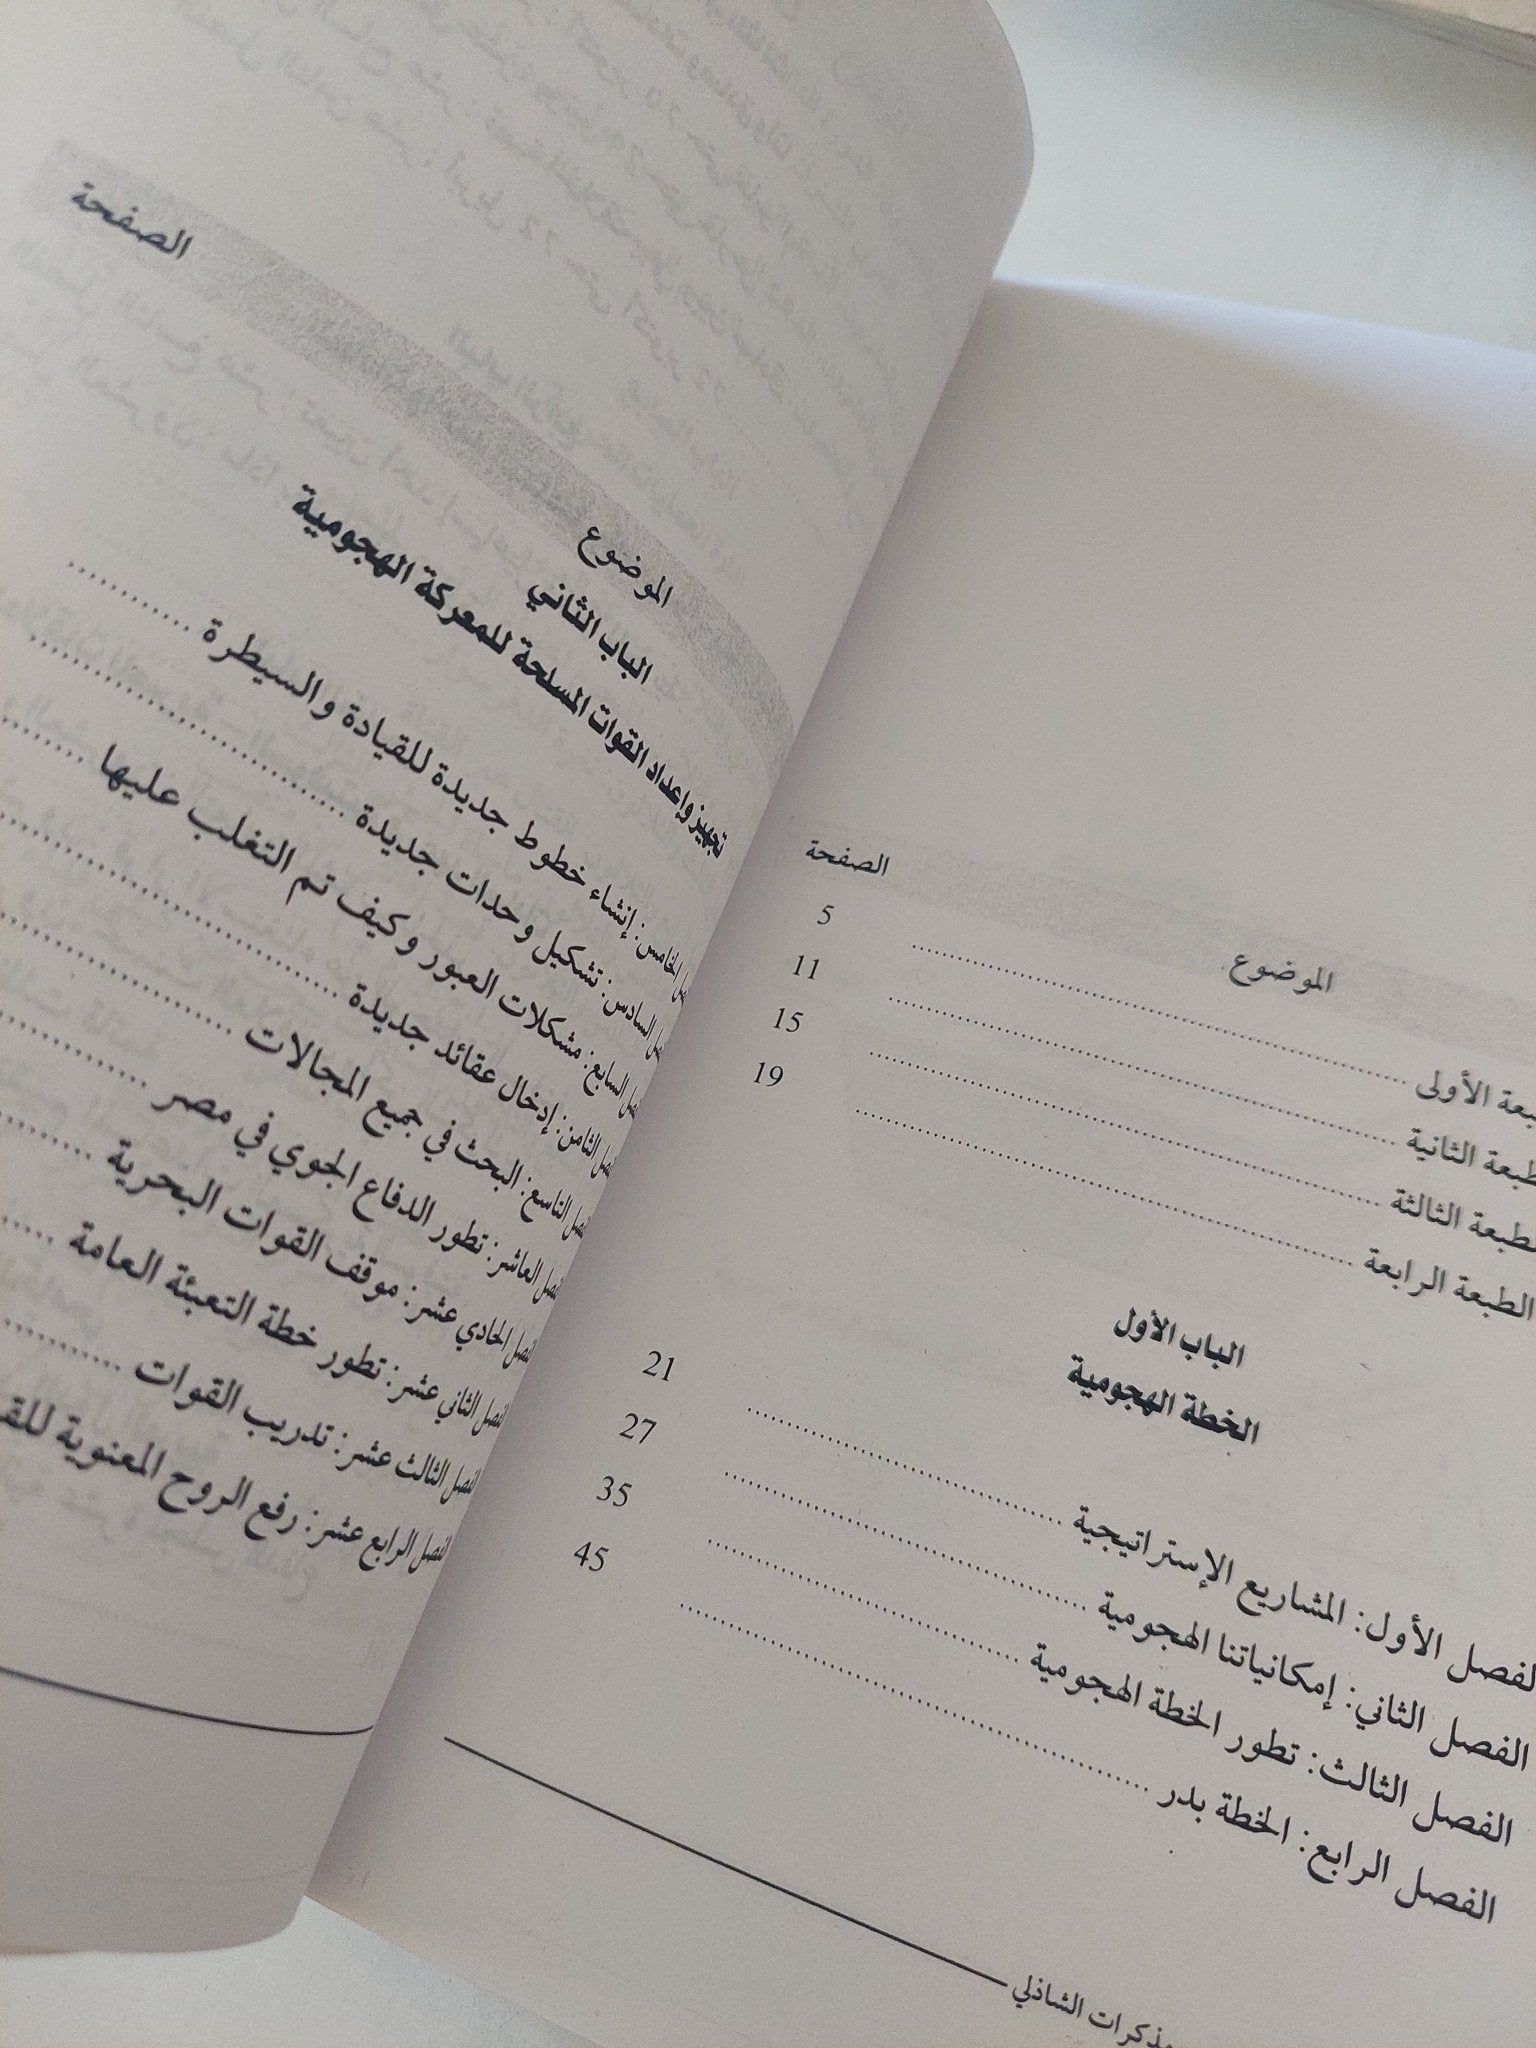 الموضوع الصفحة
الأولى 5
الثانية 11
الثالثة 15
الطبعة الرابعة 19
الباب الأول
الخطة الهجومية
الفصل الأول: المشاريع الإستراتيجية 21
الفصل الثاني: إمكانياتنا الهجومية 27
الفصل الثالث: تطور الخطة الهجومية 35
الفصل الرابع: الخطة بدر 45
مذكرات الشاذلي
الموضوع الصفحة
الباب الثاني
تجهيز وإعداد القوات المسلحة للمعركة الهجومية
الخامس: إنشاء خطوط جديدة للقيادة والسيطرة
السادس: تشكيل وحدات جديدة
السابع: مشكلات العبور وكيف تم التغلب عليها
الثامن: إدخال عقائد جديدة
التاسع: البحث في جميع المجالات
العاشر: تطور الدفاع الجوي في مصر
الحادي عشر: موقف القوات البحرية
الفصل الثاني عشر: تطور خطة التعبئة العامة
الفصل الثالث عشر: تدريب القوات
الفصل الرابع عشر: رفع الروح المعنوية